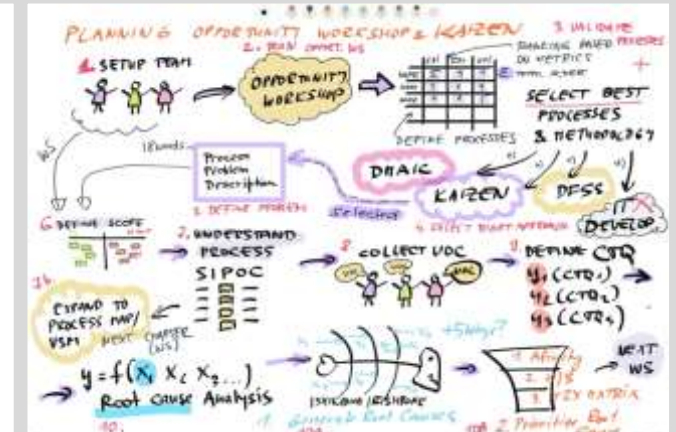 PLANNING OPPORTUNITY WORKSHOP & KAIZEN
1. SETUP TEAM
OPPORTUNITY
WORKSHOP
3. VALIDATE
PROCESSES
ON METRICS
DEFINE PROCESSES
SELECT BEST
PROCESSES
& METHODOLOGY
DMAIC
KAIZEN
DFSS
IT
DEVELOP
WS
Process
Problem
Description
5. DEFINE PROBLEM
selected
4. SELECT RIGHT APPROACH
6. DEFINE SCOPE
7. UNDERSTAND
PROCESS
SIPOC
8.
COLLECT VOC
9.
DEFINE CTQ
y1 (CTQ1)
y2 (CTQ2)
y3 (CTQ3)
EXPAND TO
PROCESS MAP/
VSM
NEXT CHAPTER
(WS)
y = f(x1 x2 x3...)
Root Cause Analysis
10.
+5 Whys?
ISHIKAWA/FISHBONE
Generate Root Causes
1. Affinity
2.
3. FXY MATRIX
2. Prioritize Root
NEXT
WS